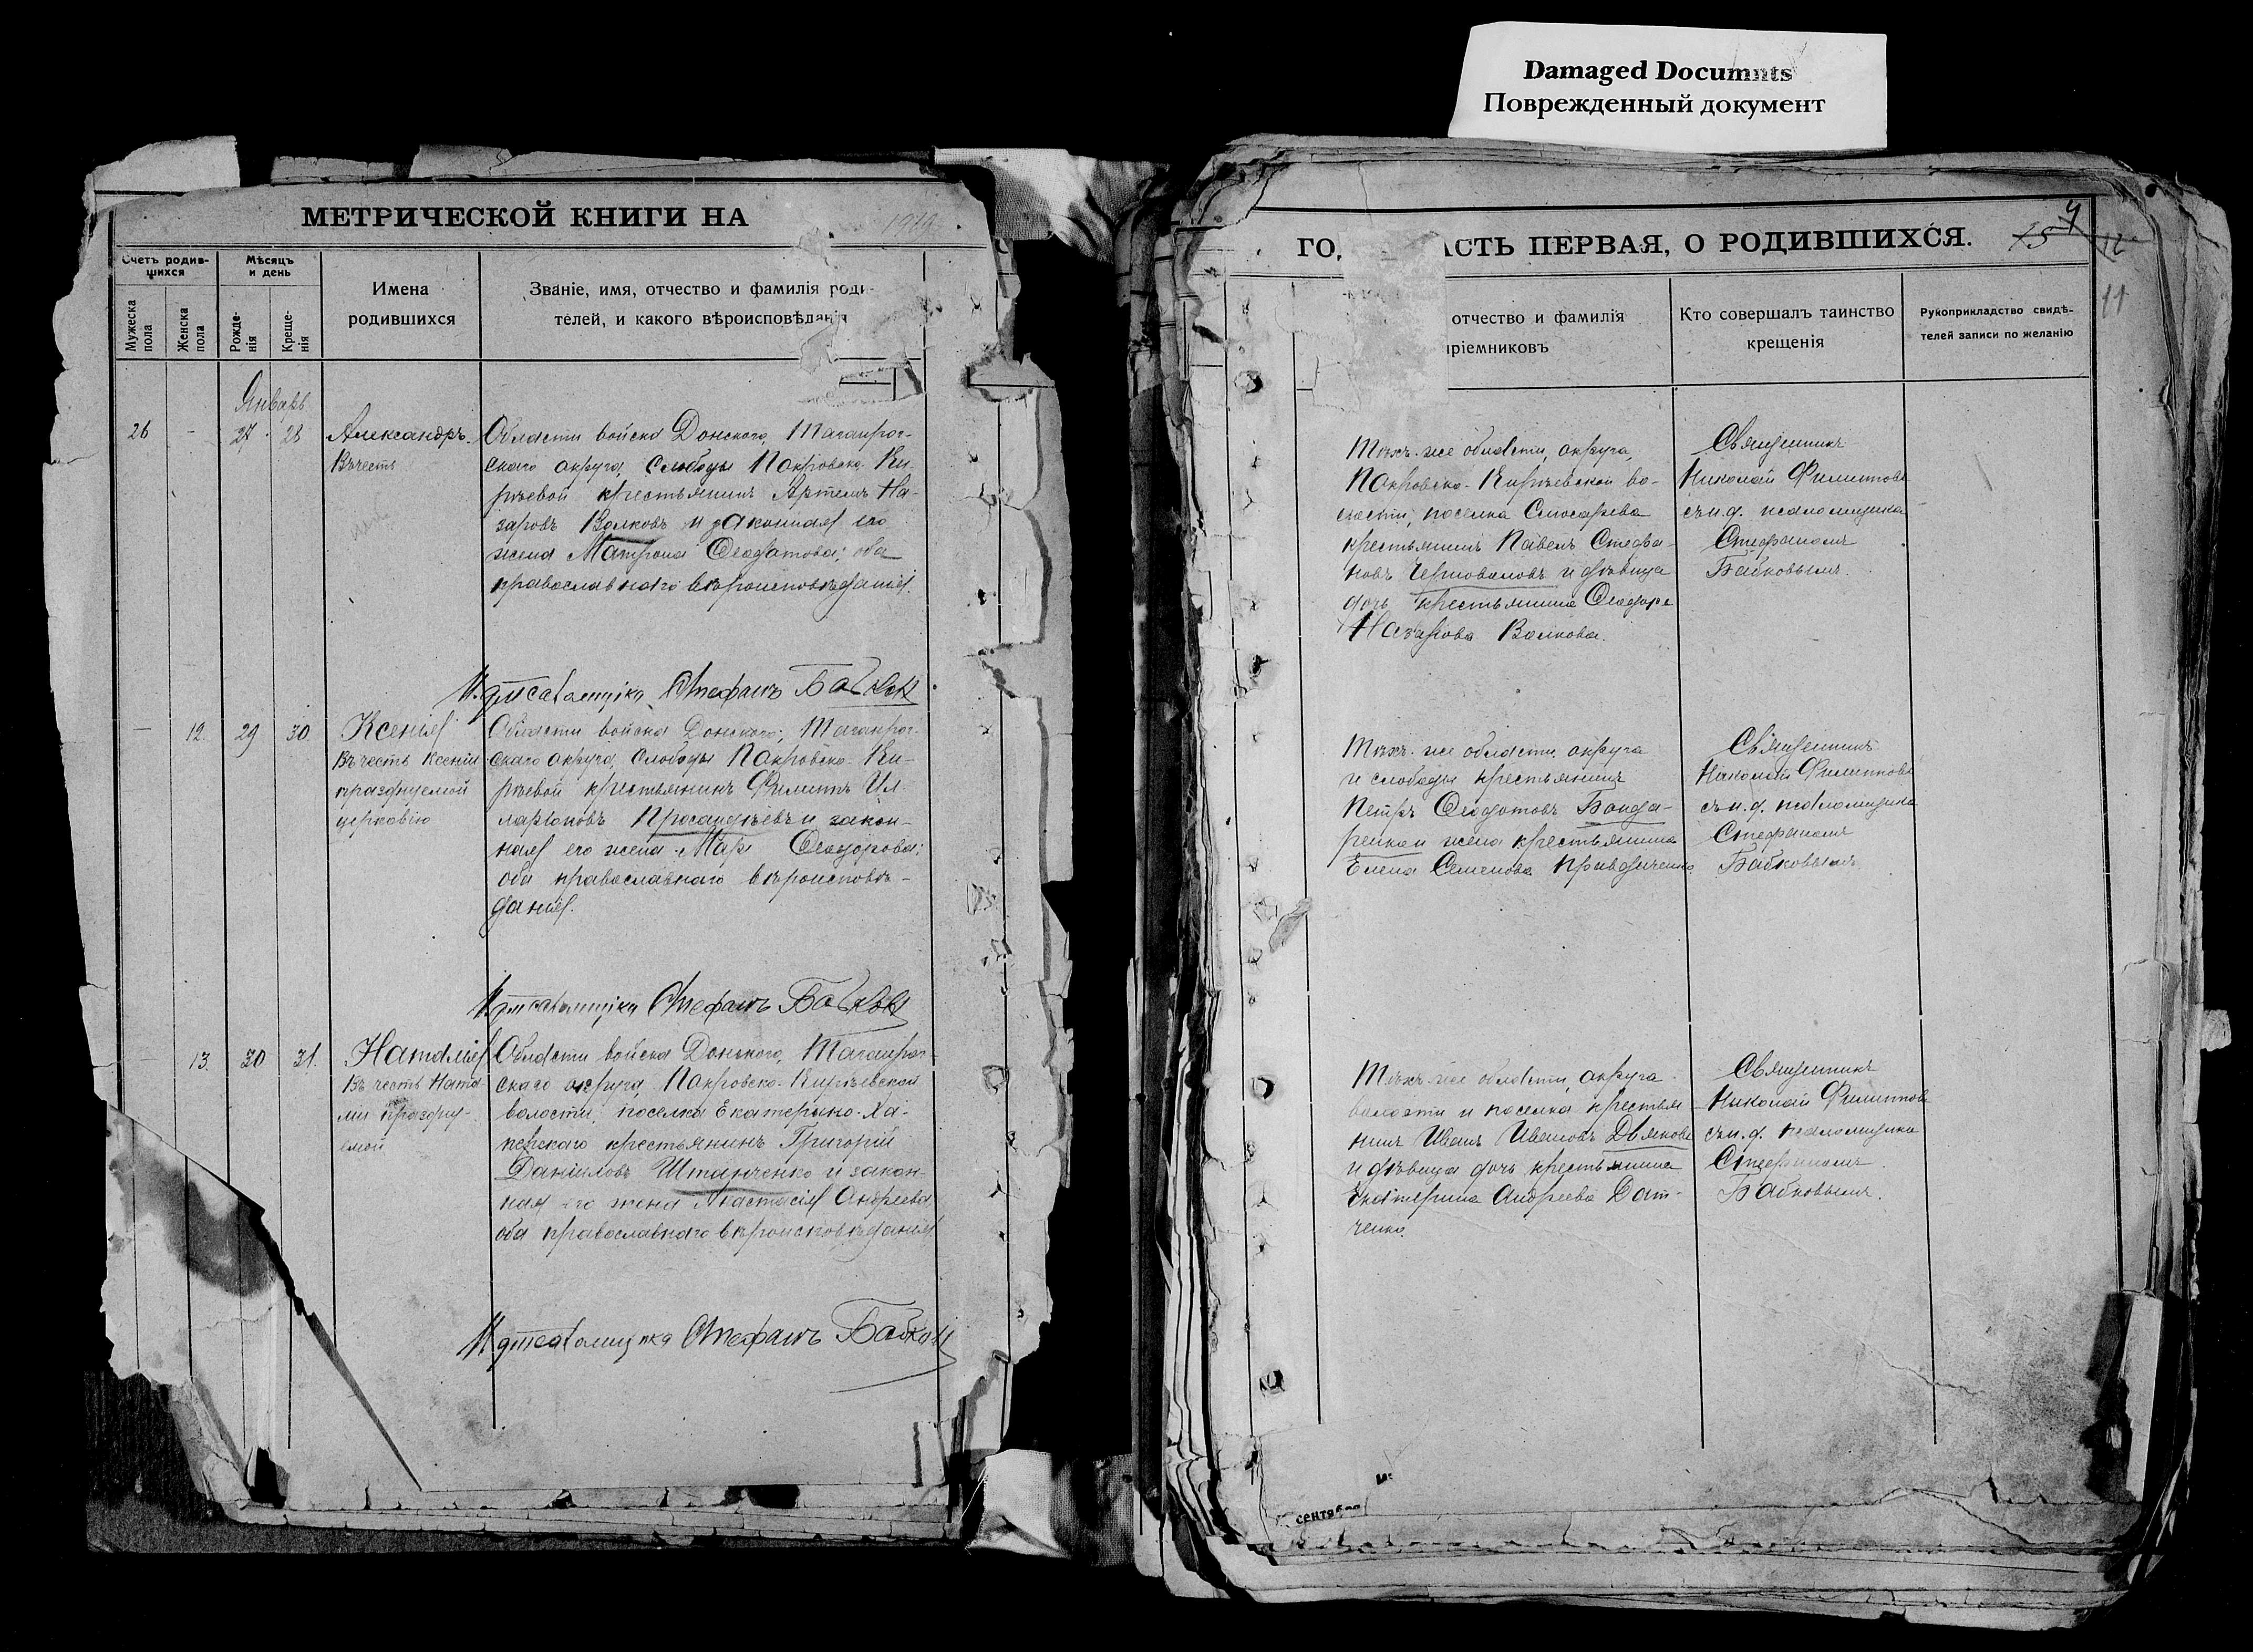 Damaged Documnts
Поврежденный документ
МЕТРИЧЕСКОЙ КНИГИ НА
Счетъ родив-
шихся
Мѣсяцъ
и день
Мужеска
пола
Женска
пола
Рожде-
нія
Креще-
нія
Имена
родившихся
Званіе, имя, отчество и фамилія роди-
телей, и какого вѣроисповѣданія
Январь
26 - 27 28
Александръ.
Въ честь
Области войска Донского, Таганрог-
скаго округа, слободы Покровско-Ки-
рѣевой крестьянинъ Артемъ На-
заровъ Волковъ и законная его
жена Матрона Ѳеодотова; оба
православнаго вѣроисповѣданія.
И.д. псаломщика Стефанъ Бабковъ
— 12. 29 30
Ксенія
Въ честь Ксеніи
празднуемой
церковію
Области войска Донского, Таганрог-
скаго округа, слободы Покровско-Ки-
рѣевой крестьянинъ Филиппъ Ил-
ларіоновъ и закон-
ная его жена Ѳеодорова;
оба православнаго вѣроисповѣ-
данія.
И.д. псаломщика Стефанъ Бабковъ
— 13. 30 31.
Наталія
Въ честь Ната-
ліи празднуе-
мой
Области войска Донского, Таганрог-
скаго округа, Покровско-Кирѣевской
волости, поселка Екатерино-Ха-
прскаго крестьянинъ Григорій
Даніиловъ Штанченко и закон-
ная его жена Анастасія Андреева
оба православнаго вѣроисповѣданія.
И.д. псаломщика Стефанъ Бабковъ
ГО АСТЬ ПЕРВАЯ, О РОДИВШИХСЯ.
15
12
11
отчество и фамилія
пріемниковъ
Кто совершалъ таинство
крещенія
Рукоприкладство свидѣ-
телей записи по желанію
Тѣхъ-же области, округа,
Покровско-Кирѣевской во-
лости, поселка Слюсарева
крестьянинъ Павелъ Стефа-
новъ Черноваловъ и дѣвица
дочь крестьянина Ѳеодора
Назарова Волкова.
Священникъ
Николай Филипповъ
съ и.д. псаломщика
Стефаномъ
Бабковымъ.
Тѣхъ-же области, округа
и слободы крестьянинъ
Петръ Ѳеодотовъ Бонда-
ренко и жена крестьянина
Елена Семенова Приведиченко
Священникъ
Николай Филипповъ
съ и.д. псаломщика
Стефаномъ
Бабковымъ
Тѣхъ-же области, округа
волости и поселка крестья-
нинъ Иванъ Ивановъ Дьяковъ
и дѣвица дочь крестьянина
Екатерина Андреева Дат-
ченко.
Священникъ
Николай Филипповъ
съ и.д. псаломщика
Стефаномъ
Бабковымъ.
сентября